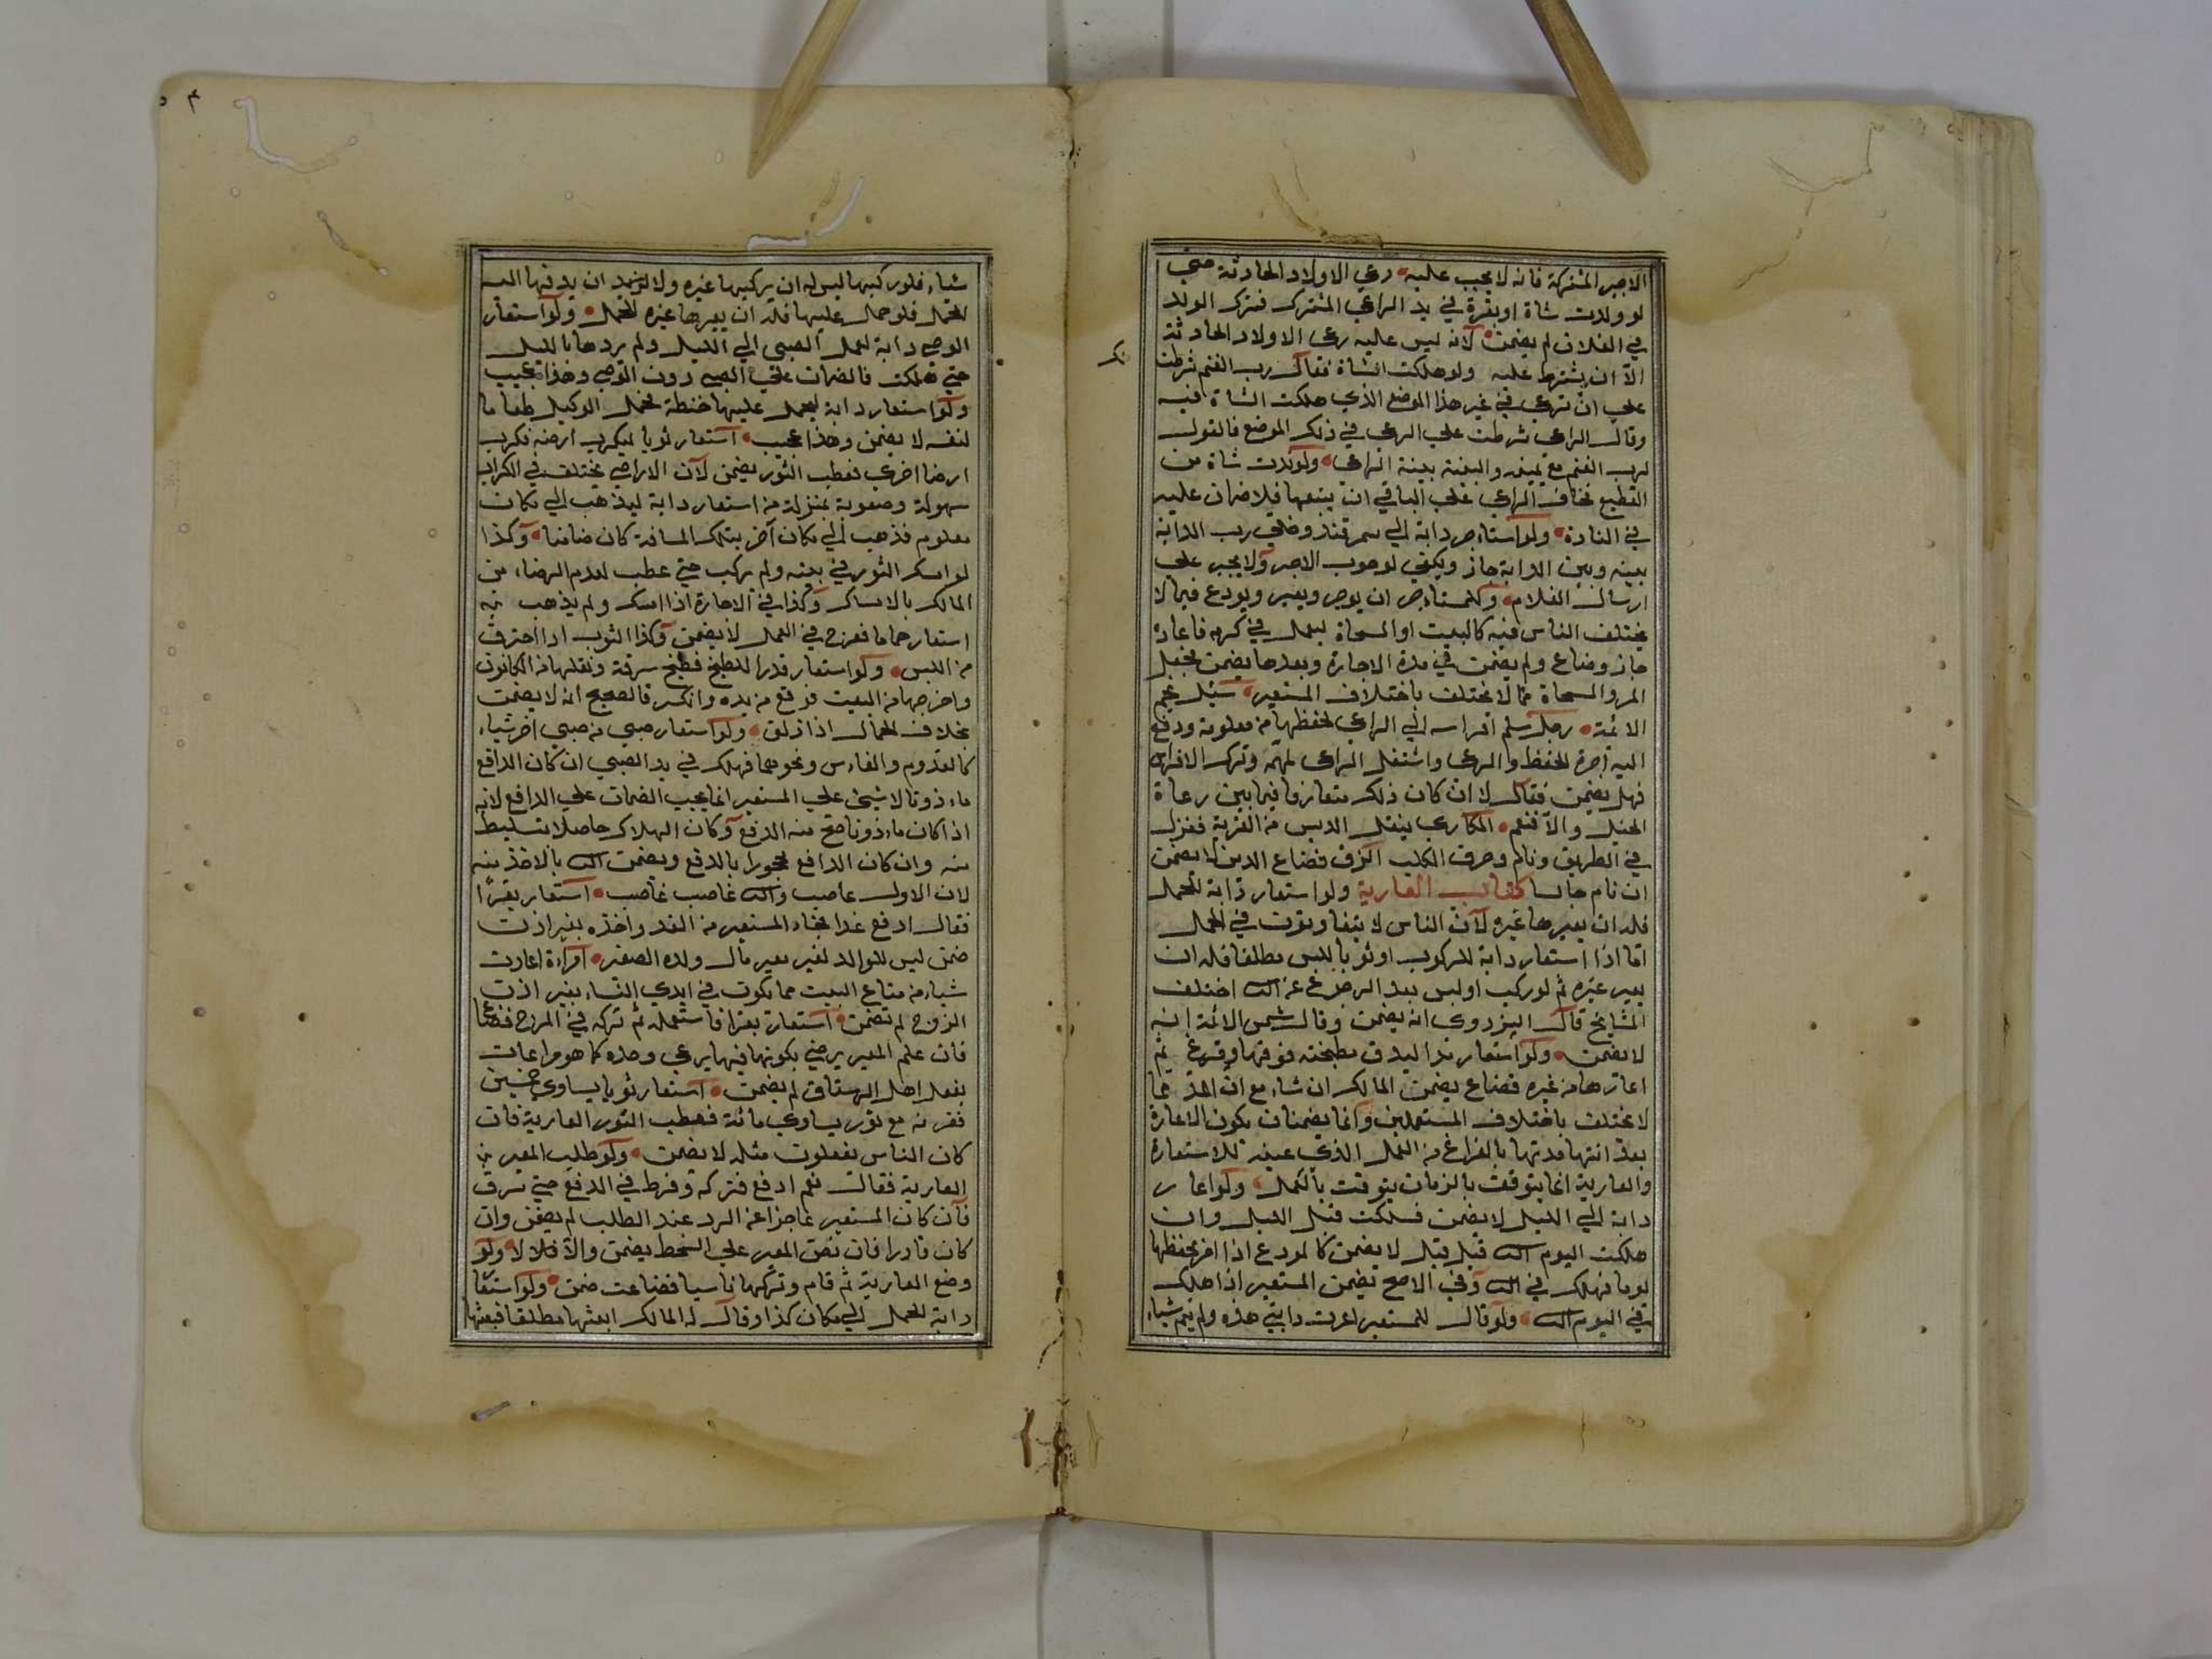 الاجير المشتركة فانه لا يجب عليه رعي الاولاد الحادثة حتي
لو ولدت شاة او بقرة في يد الراعي المشترك فترك الولد
في الفلاة لم يضمن لانه ليس عليه رعي الاولاد الحادثة
الا ان يشترط عليه ولو هلكت الشاة فقال رب الغنم شرطت
علي ان ترعي في غير هذا الموضع الذي هلكت الشاة فيه
وقال الراعي شرطت علي الرعي في ذلك الموضع فالقول
لرب الغنم مع يمينه والبينة بينة الراعي ولو ندت شاة من
القطيع فخاف الراعي علي الباقي ان يتبعها فلا ضمان عليه
في النادة ولو استاجر دابة الي سمرقند وخلي رب الدابة
بينه وبين الدابة جاز ويكفي لوجوب الاجر ولا يجبر علي
ارسال الغلام وللمستاجر ان يوجر ويعير ويودع فيما لا
يختلف الناس فيه كالبيت او المسحاة ليعمل في كرمه فاعاره
جاز وضاع ولم يضمن في مدة الاجارة وبعدها يضمن فجعل
المر والمسحاة مما لا يختلف باختلاف المستعير سئل نجم
الائمة رجل سلم افراسه الي الراعي ليحفظها مدة معلومة ودفع
اليه اجرة الحفظ والرعي واشتغل الراعي لمهمه وترك الافراس
فهل يضمن فقال لا ان كان ذلك متعارفا فيما بين رعاة
الخيل والا فنعم المكاري ينقل الدبس من القرية فنزل
في الطريق ونام وخرق الكلب الزق فضاع الدبس لا يضمن
ان نام جالسا كتاب العارية ولو استعار دابة للحمل
فله ان يعيرها غيره لان الناس لا يتفاوتون في الحمل
اما اذا استعار دابة للركوب او ثوبا للبس مطلقا فله ان
يعير غيره ثم لو ركب او لبس بعد الرجوع عن الث اختلف
المشايخ قال البزدوي انه يضمن وقال شمس الائمة انه
لا يضمن ولو استعار قدرا ليدق بمطبخته فوقها وفرغ ثم
اعارها من غيره فضاع يضمن المالك ان شاء مع ان المر مما
لا يختلف باختلاف المستعملين وانما يضمنان لكون الاعارة
بعد انتها مدتها بالفراغ من العمل الذي عينه للاستعارة
والعارية انما يتوقف بالزمان يتوقت بالعمل ولو اعار
دابة الي الليل لا يضمن فهلكت قبل الليل وان
هلكت اليوم الث قيل قبل لا يضمن كالمودع اذا امر بحفظها
يوما فهلك في الث وفي الاصح يضمن المستعير اذا هلك
في اليوم الث ولو قال للمستعير اعرت دابتي هذه ولم يسم شياء
شاء فلو ركبها ليس له ان يركبها غيره ولا لزيد ان يدفعها اليه
للحمل فلو حمل عليها فله ان يعيرها غيره للحمل ولو استعار
الوصي دابة لعمل الصبي الي الليل ولم يردها بالليل
حتي هلكت فالضمان علي الصبي دون الوصي وهذا عجيب
ولو استعار دابة ليحمل عليها حنطة فحمل الوكيل طعاما
لنفسه لا يضمن وهذا عجيب استعار ثورا ليكرب ارضه فكرب
ارضا اخري فعطب الثور يضمن لان الاراضي يختلف في الكراب
سهولة وصعوبة بمنزلة من استعار دابة ليذهب الي مكان
معلوم فذهب الي مكان آخر بتلك المسافة كان ضامنا وكذا
لو امسك الثور في بيته ولم يركب حتي عطب لعدم الرضاء من
المالك بالامساك وكذا في الاجارة اذا امسك ولم يذهب به
استعار حمارا فعرج في العمل لا يضمن وكذا الثوب اذا احترق
من اللبس ولو استعار قدرا للطبخ فطبخ مرقة ونقلها من الكانون
واخرجها من البيت فوقع من يده وانكسر فالصحيح انه لا يضمن
بخلاف الحمال اذا زلق ولو استعار صبي من صبي اخر شياء
كالقدوم والفاس ونحوهما فهلك في يد الصبي ان كان الدافع
ماذونا لا شيئ علي المستعير انما يجب الضمان علي الدافع لانه
اذا كان ماذونا صح منه الدفع وكان الهلاك حاصلا بتسليط
منه وان كان الدافع محجورا بالدفع ويضمن الث بالاخذ منه
لان الاول غاصب والث غاصب غاصب استعار بقرا
فقال ادفع غدا فجاء المستعير من الغد واخذه بغير اذن
ضمن ليس للوالد لغير يعير مال ولده الصغير امراءة اعارت
شياء من متاع البيت مما يكون في ايدي النساء بغير اذن
الزوج لم تضمن استعار بقرا فاستعمله ثم تركه في المرج فضاع
فان علم المعير يرضي بكونها فيها يرعي وحده كما هو مراعات
بفعل اهل الرستاق لم يضمن استعار ثورا يساوي خمسين
فقرنه مع ثور يساوي مائة فعطب الثور العارية فان
كان الناس يفعلون مثله لا يضمن ولو طلب المعير من
العارية فقال نعم ادفع فتركه وفرط في الدفع حتي سرق
فان كان المستعير عاجزا عن الرد عند الطلب لم يضمن وان
كان قادرا فان نص المعير علي السخط يضمن والا فلا لا ولو
وضع العارية ثم قام وتركها ناسيا فضاعت ضمن ولو استعار
دابة للحمل الي مكان كذا وقال له المالك ابعثها مطلقا فبعثها